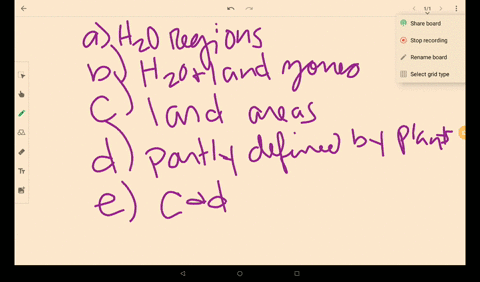 1/1
Share board
Stop recording
Rename board
Select grid type
a) H2O regions
b) H2O+land zones
c) land areas
d) Partly defined by plants
e) C+d
Tr